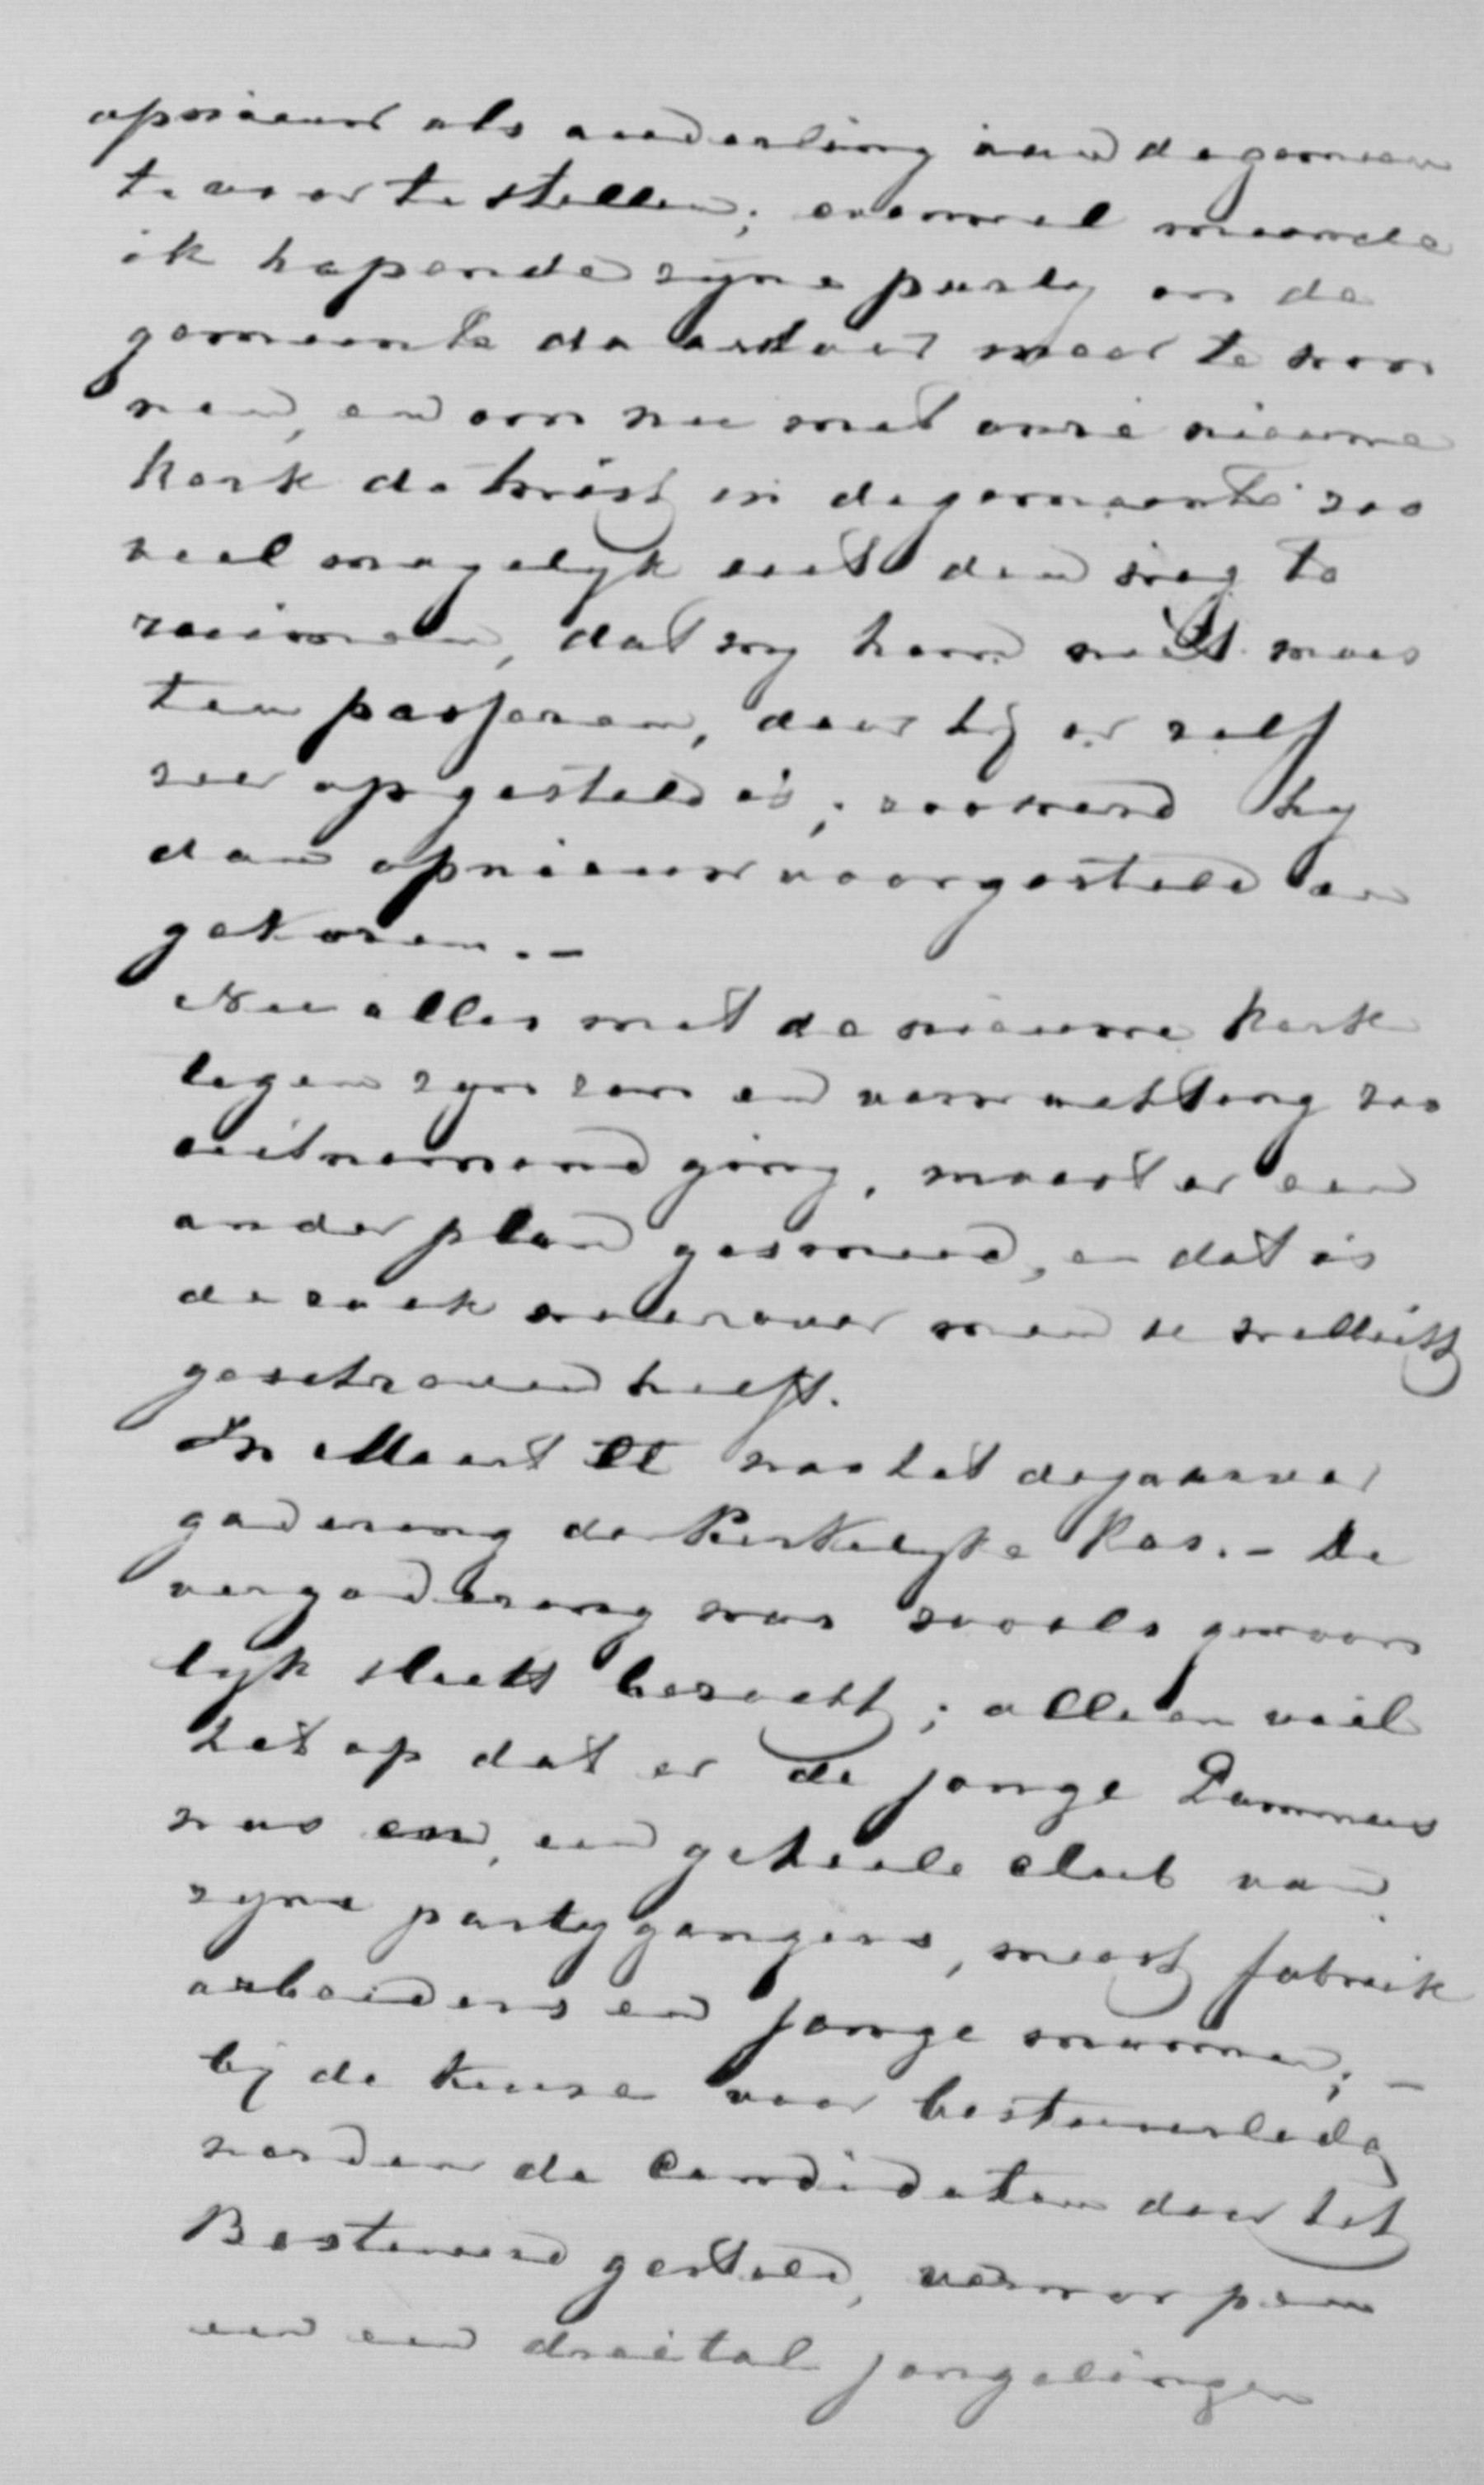 opnieuw als ouderling aan de gemeen
te voor te stellen; evenwel meende
ik hopende zyne party en de
gemeente daardoor meer te win
nen, en om nu met onze nieuwe
kerk de twist in de gemeente zoo
veel mogelyk uit den weg te
ruimen, dat wy hem niet moes
ten passeren, daar hij er zelf
zeer op gesteld is; zoo werd hy
dan opnieuw voorgesteld en
gekozen. –
Nu alles met de nieuwe kerk
tegen zyn zin en verwachting zoo
uitnemend ging, moest er een
ander plan gesmeed, en dat is
de zaak waarover men u wellicht
geschreven heeft.
In Maart ll was het de jaarver
gadering der Kerkelyke Kas. – De
vergadering was zooals gewoon
lyk slecht bezocht; alleen viel
het op dat er de jonge Dammers
was en, een geheele club van
zyne partygangers, meest fabriek
arbeiders en jonge mannen; –
bij de keuze voor bestuursleden
werden de Candidaten door het
Bestuur gesteld, verworpen
en een drietal jongelingen